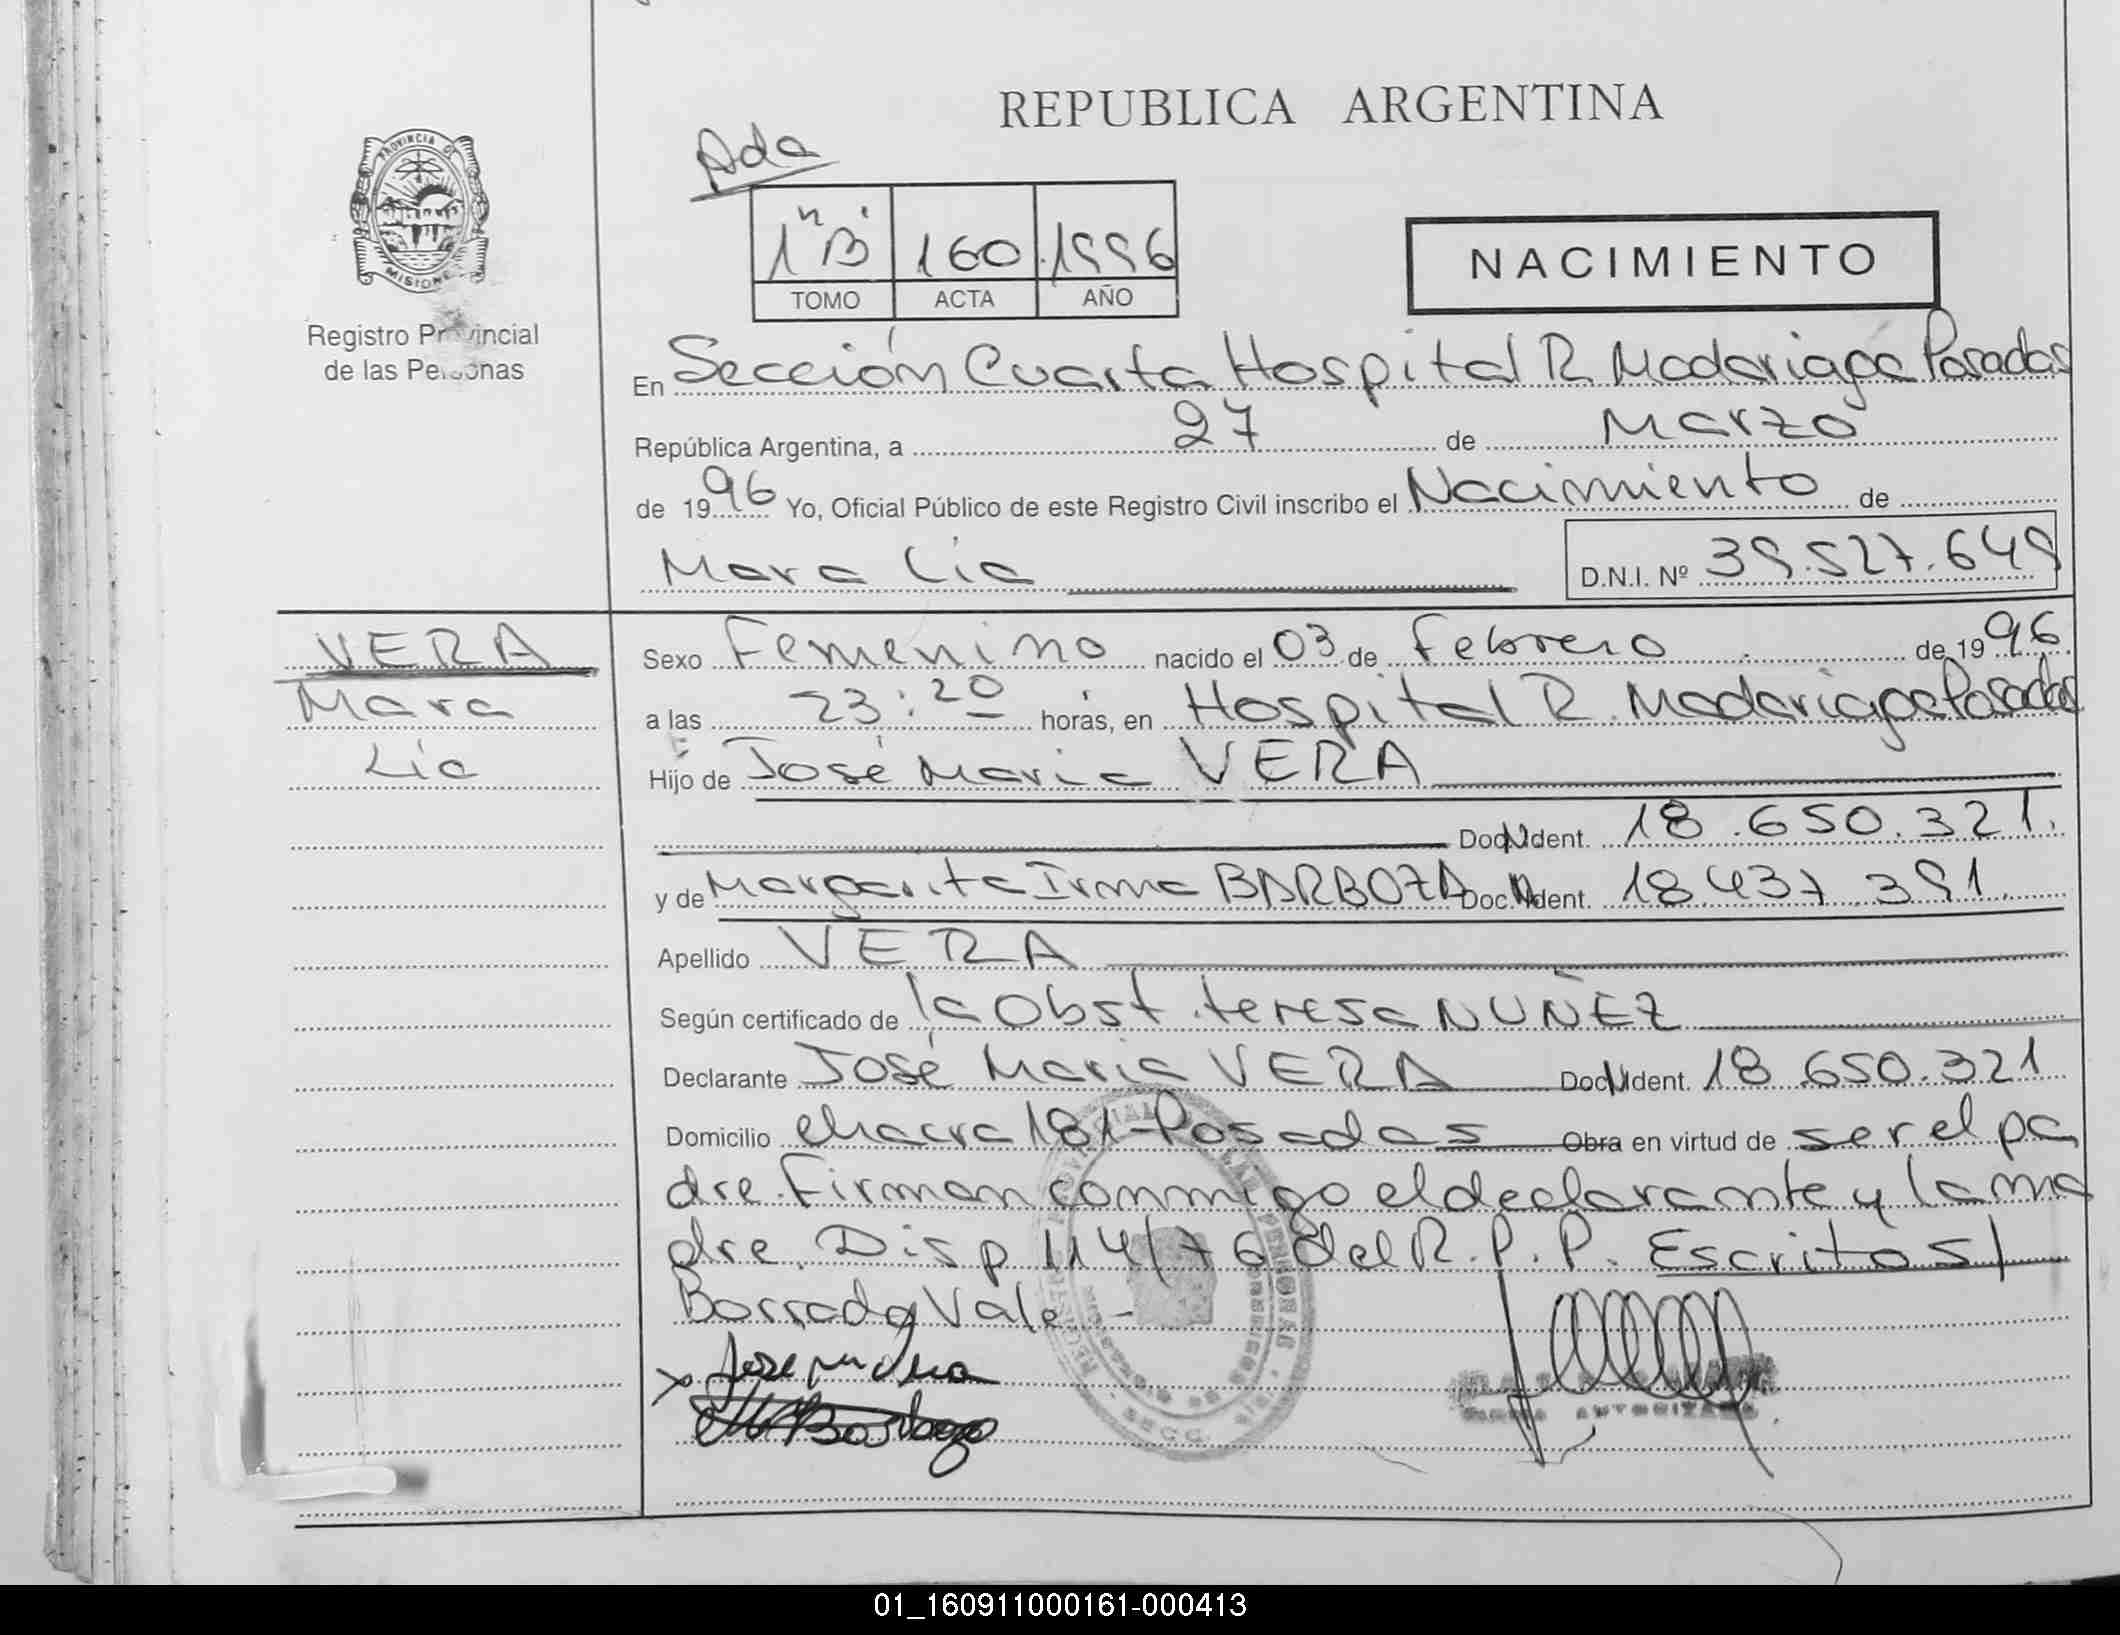 REPUBLICA ARGENTINA
Ada
1º "B" 160 1996
TOMO ACTA AÑO
NACIMIENTO
PROVINCIA DE MISIONES
Registro Provincial
de las Personas
En Sección Cuarta Hospital R. Madariaga Posadas
República Argentina, a 27 de Marzo
de 1996 Yo, Oficial Público de este Registro Civil inscribo el Nacimiento de
Mara Lia D.N.I. Nº 39.527.649
VERA
Mara
Lia
Sexo Femenino nacido el 03 de Febrero de 1996
a las 23:20 horas, en Hospital R. Madariaga Posadas
Hijo de José Maria VERA
Doc. Ident. 18.650.321.
y de Margarita Irma BARBOZA Doc. Ident. 18.437.391.
Apellido VERA
Según certificado de la Obst. teresa NUÑEZ
Declarante José Maria VERA Doc. Ident. 18.650.321
Domicilio chacra 181-Posadas Obra en virtud de ser el pa
dre. Firman conmigo el declarante y la ma
dre. Disp 114/76 del R.P.P. Escritos/
Borrado Vale.-
01_160911000161-000413